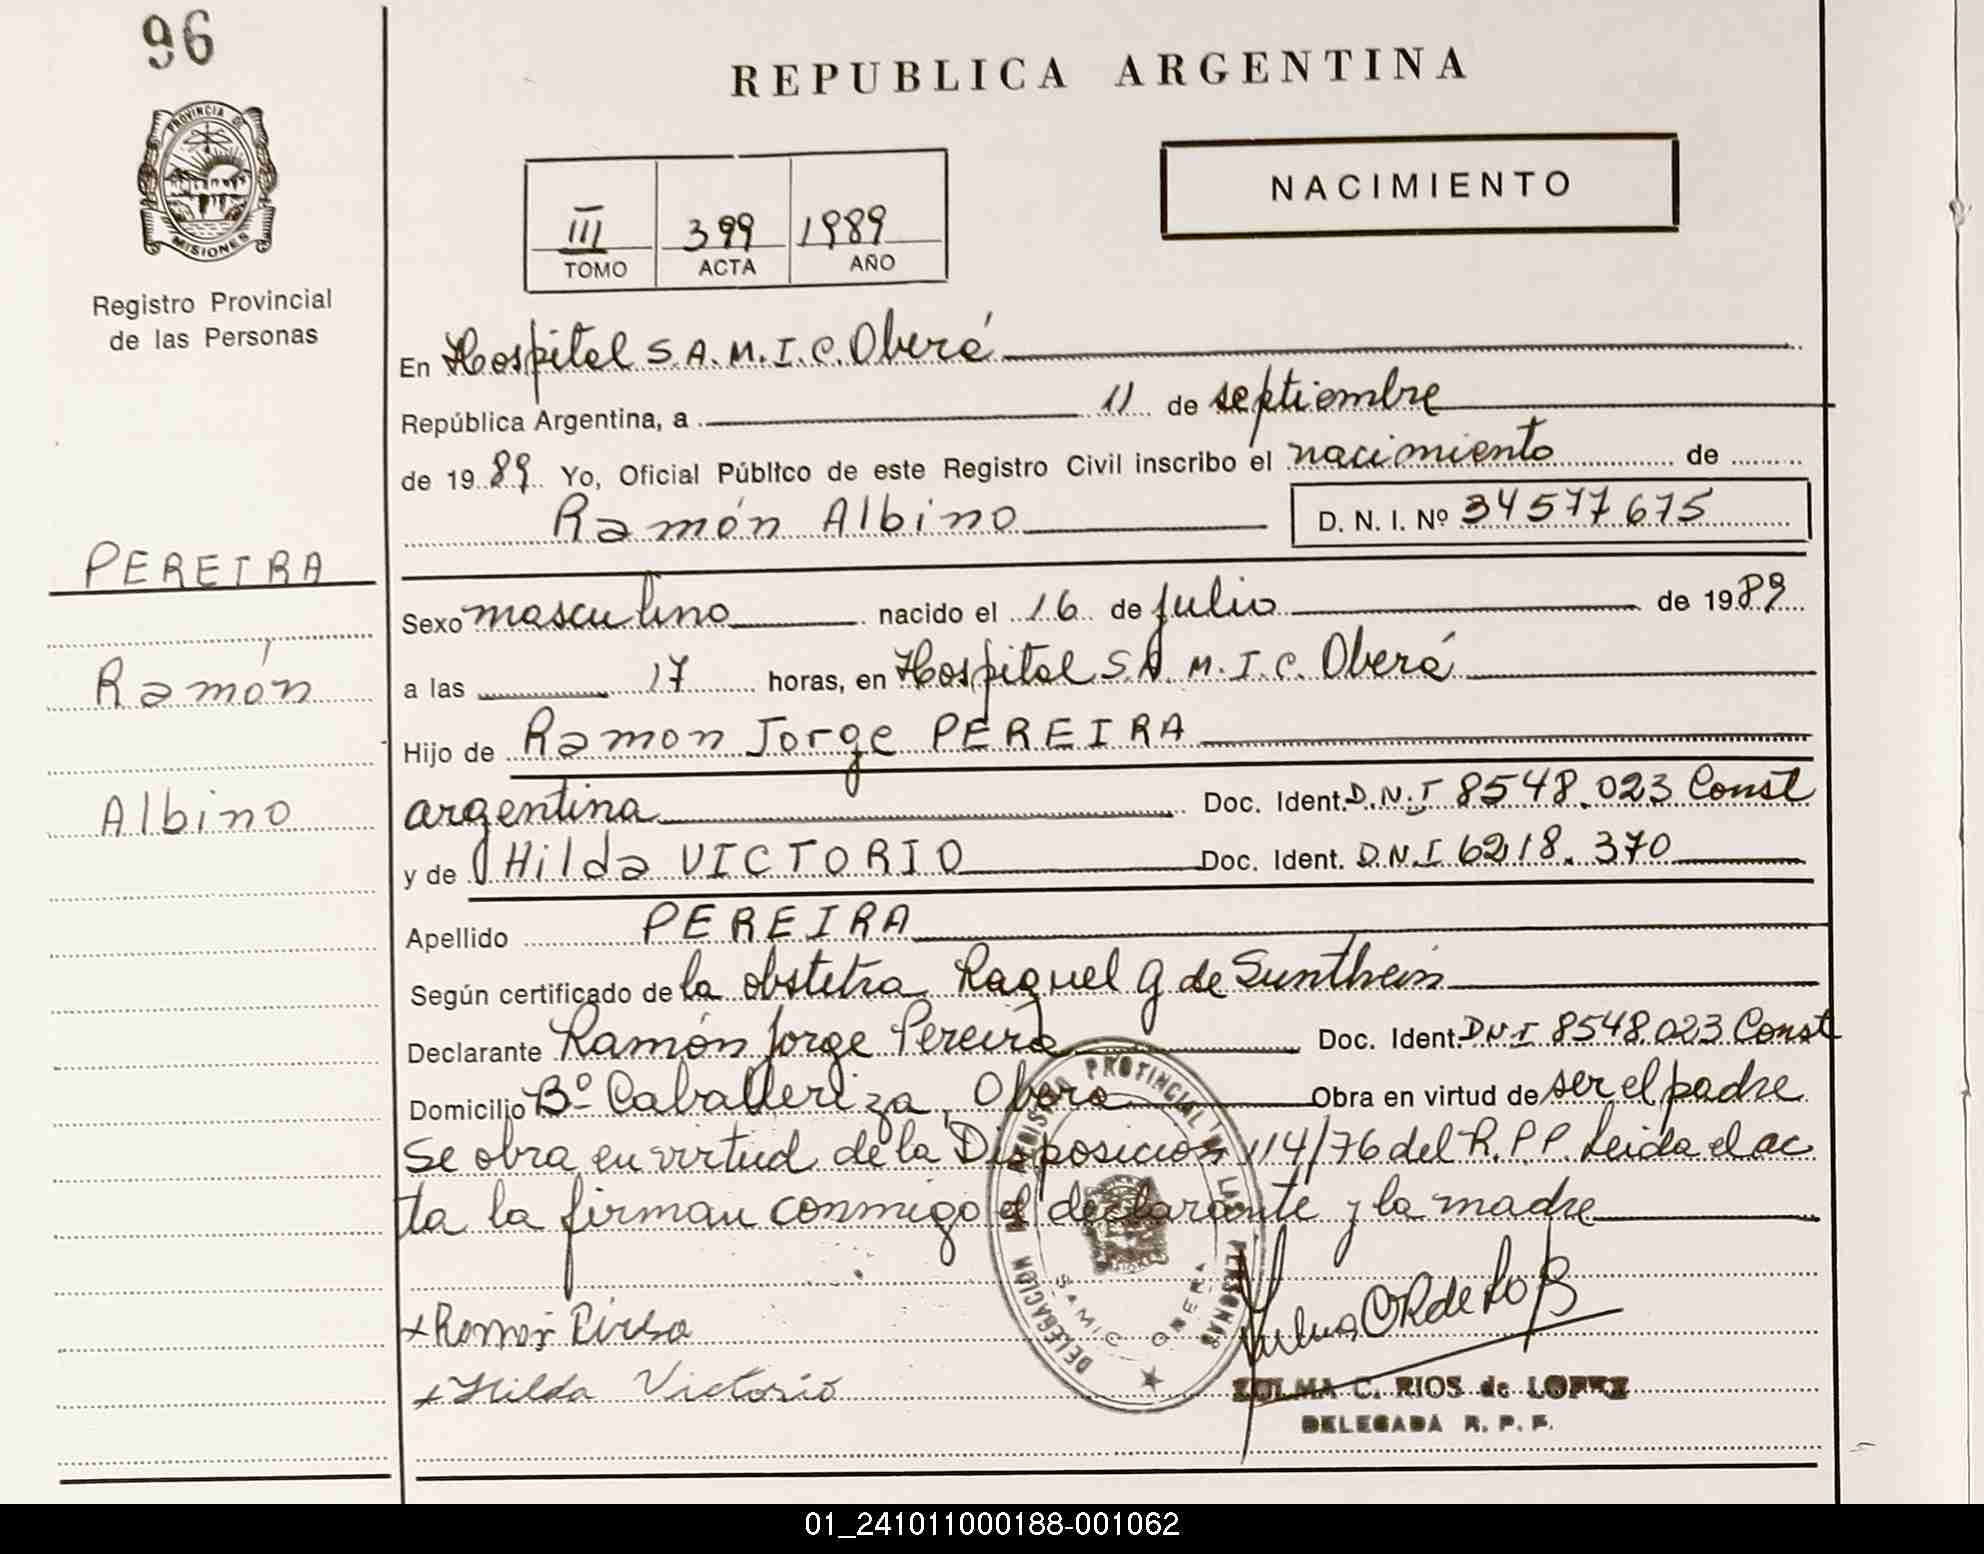 96
REPUBLICA ARGENTINA
PROVINCIA DE
MISIONES
Registro Provincial
de las Personas
NACIMIENTO
III 399 1989
TOMO ACTA AÑO
En Hospital S.A.M.I.C. Oberá
República Argentina, a 11 de septiembre
de 1989 Yo, Oficial Público de este Registro Civil inscribo el nacimiento de
Ramón Albino D. N. I. Nº 34577675
PEREIRA
Ramón
Albino
Sexo masculino nacido el 16 de julio de 1989
a las 17 horas, en Hospital S.A.M.I.C. Oberá
Hijo de Ramon Jorge PEREIRA
argentina Doc. Ident. D.N.I 8548.023 Const
y de Hilda VICTORIO Doc. Ident. D.N.I 6218.370
Apellido PEREIRA
Según certificado de la obstetra Raquel G de Sunthein
Declarante Ramón Jorge Pereira Doc. Ident. DNI 8548.023 Const
Domicilio Bº Caballeriza, Obera Obra en virtud de ser el padre
Se obra en virtud de la Disposicion 114/76 del R.P.P. Leida el ac
ta la firman conmigo el declarante y la madre
DELEGACION REGISTRO PROVINCIAL DE LAS PERSONAS
SAMIC OBERA
+ Ramon
+ Hilda Victorio
ZULMA C. RIOS de LOPEZ
DELEGADA R. P. P.
01_241011000188-001062